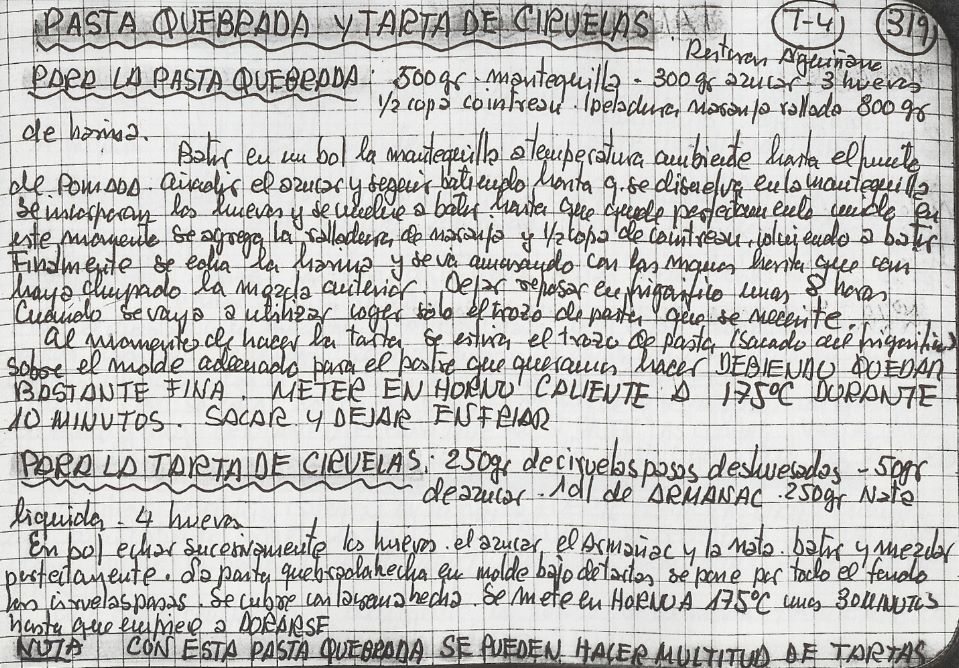 PASTA QUEBRADA Y TARTA DE CIRUELAS T-4 319
PARA LA PASTA QUEBRADA: 500gr. mantequilla - 300gr azucar - 3 huevos
1/2 copa cointreau. 1 peladura naranja rallada 800gr
de harina.
Batir en un bol la mantequilla a temperatura ambiente hasta el punto
de POMADA. añadir el azucar y seguir batiendo hasta q. se disuelva en la mantequilla
Se incorporan los huevos y se vuelve a batir hasta que quede perfectamente unido en
este momento se agrega la ralladura de naranja y 1/2 copa de cointreau, volviendo a batir
Finalmente se echa la harina y se va amasando con las manos hasta que
haya chupado la mezcla anterior. Dejar reposar en frigorifico unas 8 horas
Cuando se vaya a utilizar coger solo el trozo de pasta que se necesite.
Al momento de hacer la tarta, se estira el trozo de pasta (sacado del frigorifico)
sobre el molde adecuado para el postre que queramos hacer DEBIENDO QUEDAR
BASTANTE FINA. METER EN HORNO CALIENTE A 175ºC DURANTE
10 MINUTOS. SACAR Y DEJAR ENFRIAR
PARA LA TARTA DE CIRUELAS: 250gr de ciruelas pasas deshuesadas - 50gr
de azucar - 1dl de ARMANAC. 250gr Nata
liquida - 4 huevos
En bol echar sucesivamente los huevos. el azucar, el Armañac y la nata. batir y mezclar
perfectamente. La pasta quebrada hecha en molde bajo de tartas se pone por todo el fondo
las ciruelas pasas. Se cubre con la crema hecha. Se mete en HORNO A 175ºC unos 30 MINUTOS
hasta que empiece a DORARSE
NOTA CON ESTA PASTA QUEBRADA SE PUEDEN HACER MULTITUD DE TARTAS